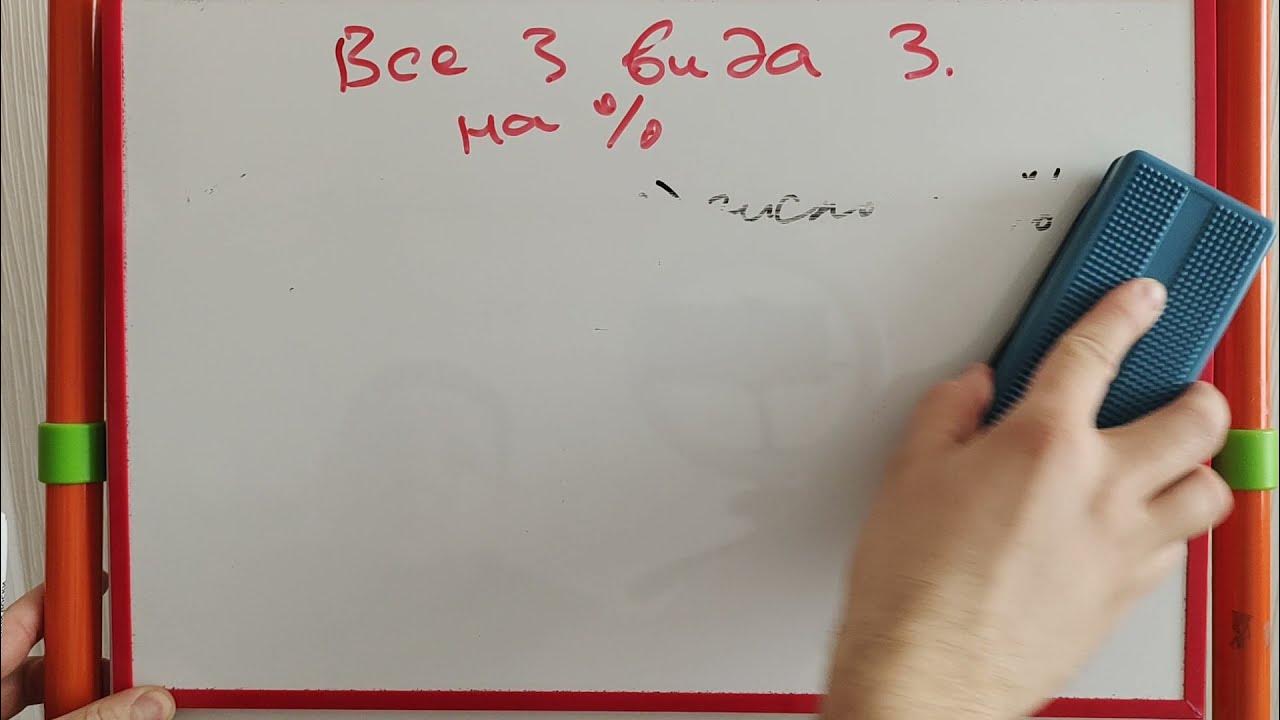 Все 3 вида З.
на %
число